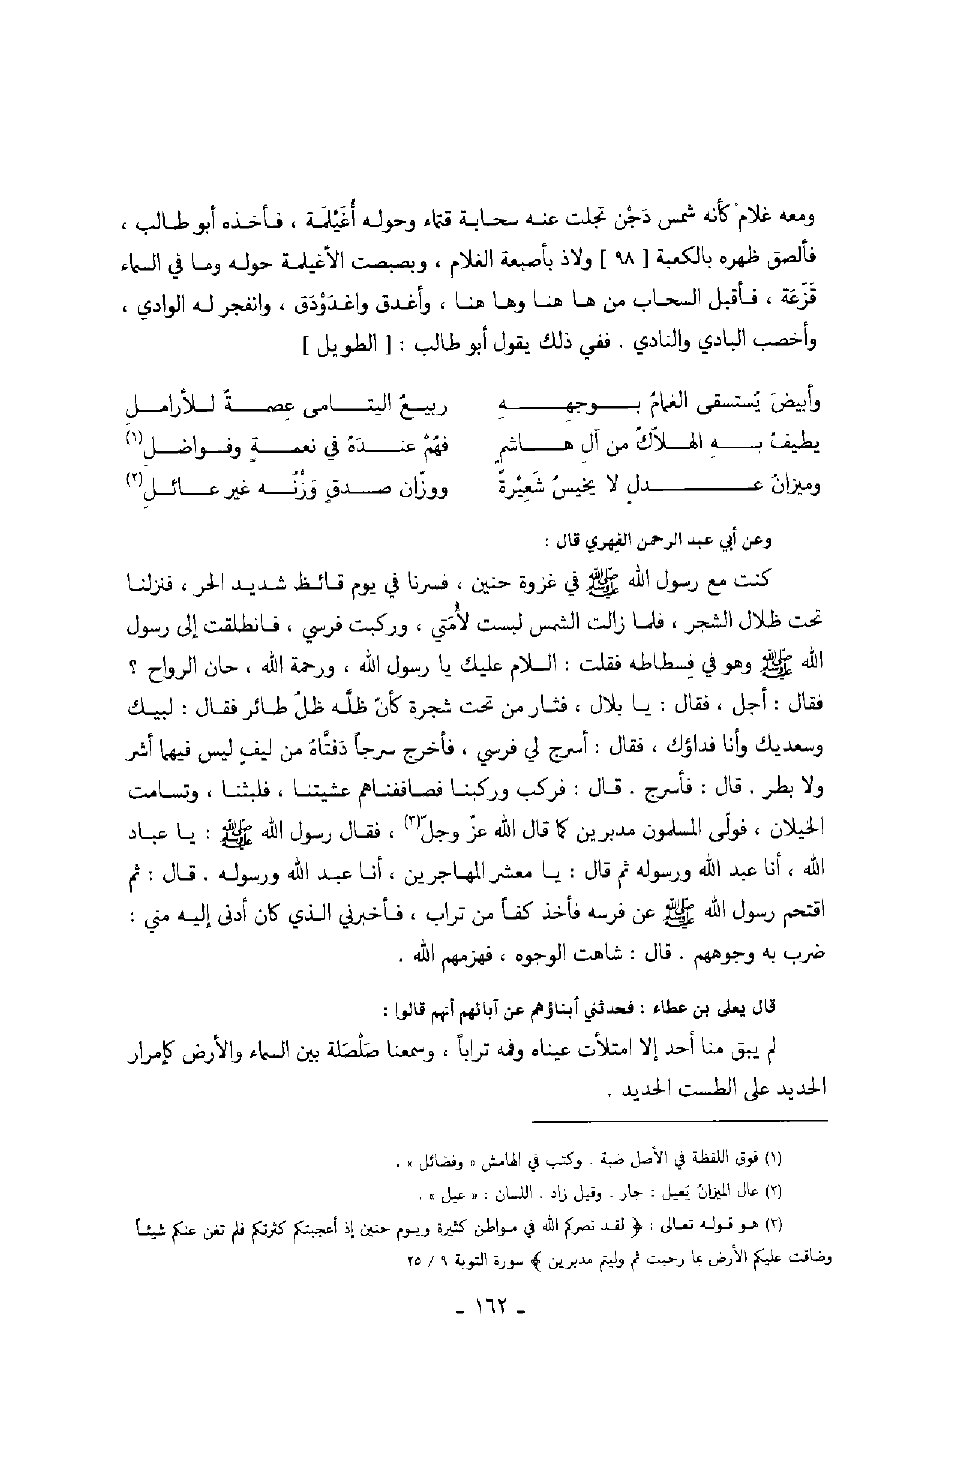 ومعه غلام كأنه شمس دَجْن تجلت عنه سحابة قتماء وحوله أُغَيْلمة ، فأخذه أبو طالب ،
فألصق ظهره بالكعبة [ ٩٨ ] ولاذ بأصبعة الغلام ، وبصبصت الأغيلمة حوله وما في السماء
قزَعة ، فأقبل السحاب من ها هنا وها هنا ، وأغدق واغدَوْدَق ، وانفجر له الوادي ،
وأخصب البادي والنادي . ففي ذلك يقول أبو طالب : [ الطويل ]
وأبيضَ يُستسقى الغمامُ بوجههِ ربيعُ اليتامى عِصمةٌ للأراملِ
يطيفُ به الهلاّكُ من آل هاشمٍ فهُمْ عندَهُ في نعمةٍ وفواضلِ(١)
وميزانُ عدلٍ لا يخيسُ شَعيْرةً ووزّان صدقٍ وَزْنُه غير عائلِ(٢)
وعن أبي عبد الرحمن الفهري قال :
كنت مع رسول الله ﷺ في غزوة حنين ، فسرنا في يوم قائظ شديد الحر ، فنزلنا
تحت ظلال الشجر ، فلما زالت الشمس لبست لأْمتي ، وركبت فرسي ، فانطلقت إلى رسول
الله ﷺ وهو في فسطاطه فقلت : السلام عليك يا رسول الله ، ورحمة الله ، حان الرواح ؟
فقال : أجل ، فقال : يا بلال ، فثار من تحت شجرة كأنّ ظلَّه ظلُّ طائر فقال : لبيك
وسعديك وأنا فداؤك ، فقال : أسرج لي فرسي ، فأخرج سرجاً دَفتّاهُ من ليفٍ ليس فيها أشر
ولا بطر . قال : فأسرج . قال : فركب وركبنا فصاففناهم عشيتنا ، فلبثنا ، وتسامت
الخيلان ، فولّى المسلمون مدبرين كما قال الله عزّ وجلّ(٣) ، فقال رسول الله ﷺ : يا عباد
الله ، أنا عبد الله ورسوله ثم قال : يا معشر المهاجرين ، أنا عبد الله ورسوله . قال : ثم
اقتحم رسول الله ﷺ عن فرسه فأخذ كفاً من تراب ، فأخبرني الذي كان أدنى إليه مني :
ضرب به وجوههم . قال : شاهت الوجوه ، فهزمهم الله .
قال يعلى بن عطاء : فحدثني أبناؤهم عن آبائهم أنهم قالوا :
لم يبق منا أحد إلا امتلأت عيناه وفمه تراباً ، وسمعنا صَلْصَلة بين السماء والأرض كإمرار
الحديد على الطست الحديد .
(١) فوق اللفظة في الأصل ضبة . وكتب في الهامش « وفضائل » .
(٢) عال الميزانُ يَعيل : جار . وقيل زاد . اللسان : « عيل » .
(٣) هو قوله تعالى : ﴿ لقد نصركم الله في مواطن كثيرة ويوم حنين إذ أعجبتكم كثرتكم فلم تغن عنكم شيئاً
وضاقت عليكم الأرض بما رحبت ثم وليتم مدبرين ﴾ سورة التوبة ٩ / ٢٥
- ١٦٢ -